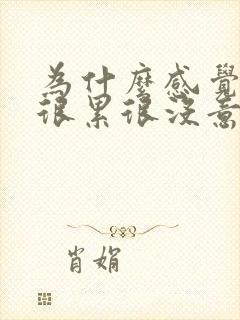 為什麼感覺
很累很沒意
肖娟